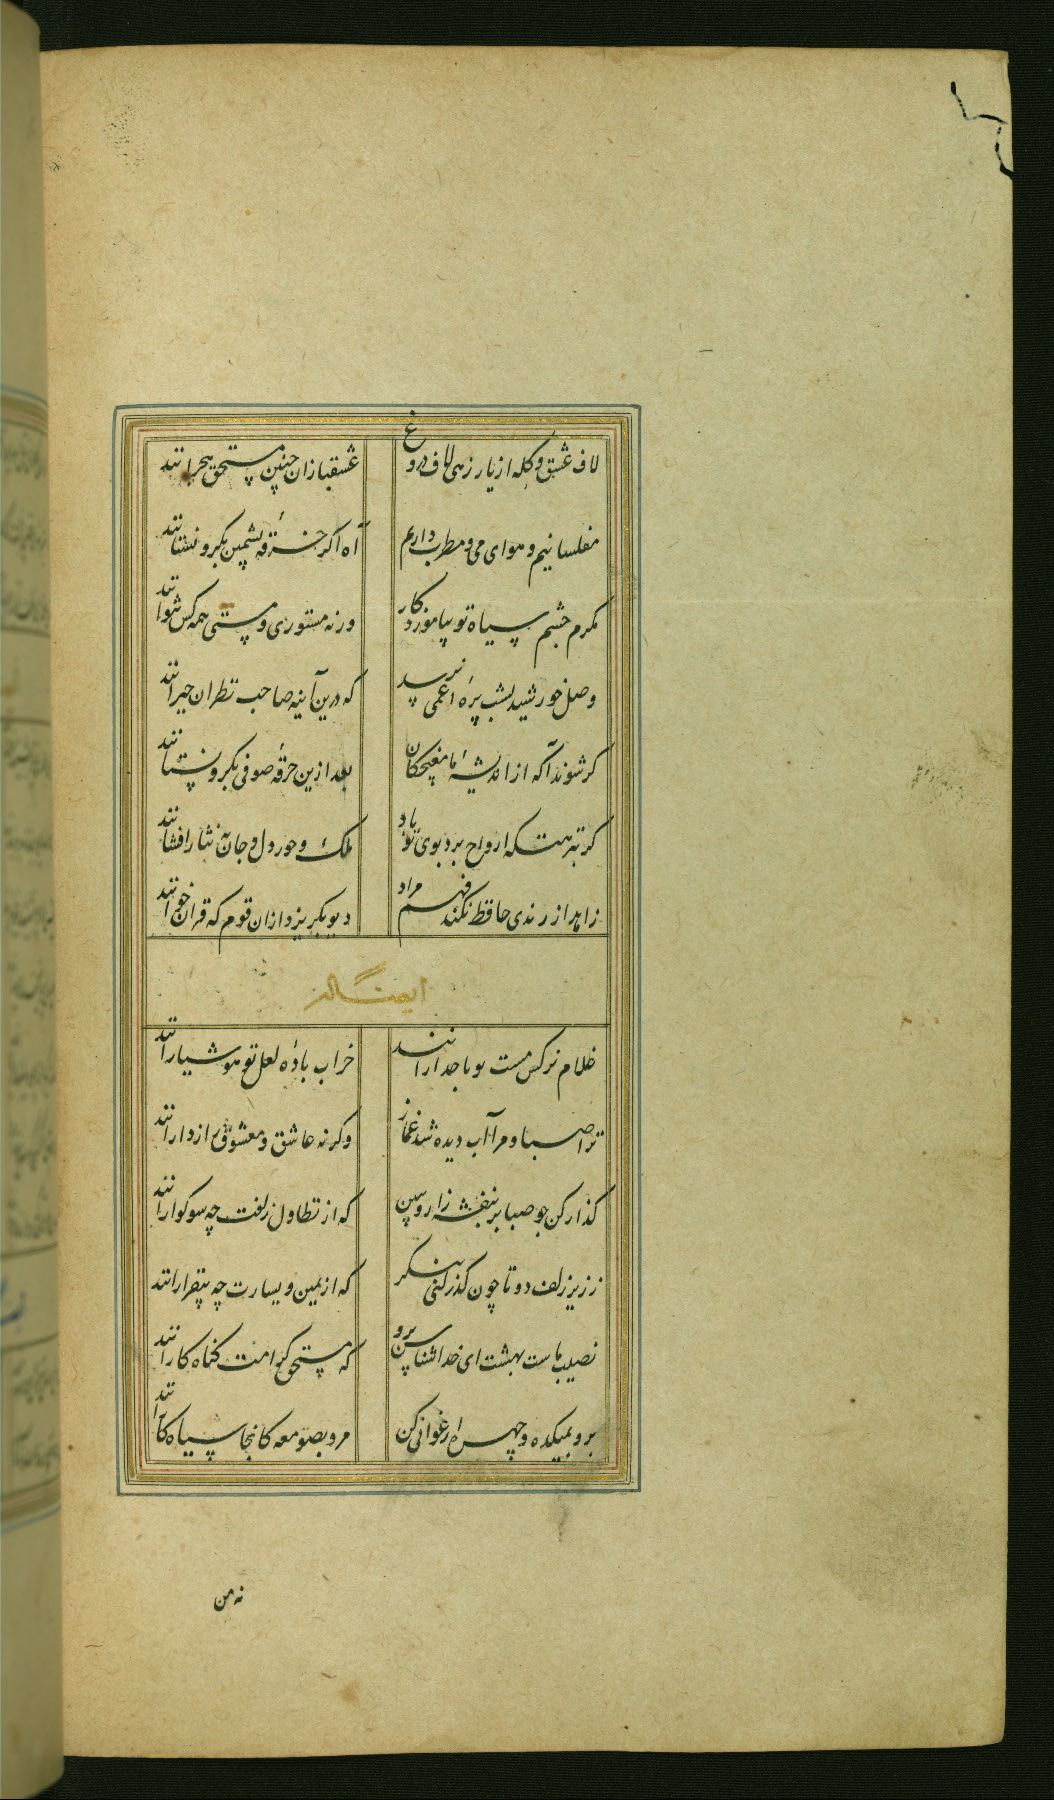 لاف عشق و کله از یار زهی لاف دروغ
عشقبازان چنین مستحق هجرانند
مفلسانیم و هوای می و مطرب داریم
آه اکر خرقه پشمین بکرو نستانند
مکرم چشم سیاه تو بیاموزد کار
ورنه مستوری و مستی همه کس نتوانند
وصل خورشید بشب پره اعمی نرسد
که درین آینه صاحب نظران حیرانند
کر شوند آکه از اندیشه ما مغبچکان
بعد ازین خرقه صوفی بکرو نستانند
کر بنزهتکه ارواح برد بوی تو باد
ملک و حور دل و جان به نثار افشانند
زاهد از رندی حافظ نکند فهم مراد
دیو بکریزد ازان قوم که قران خوانند
ایضا له
غلام نرکس مست تو تاجدارانند
خراب باده لعل تو هوشیارانند
ترا صبا و مرا آب دیده شد غماز
وکرنه عاشق و معشوق رازدارانند
کذار کن چو صبا بر بنفشه زار و ببین
که از تطاول زلفت چه سوکوارانند
ززیر زلف دوتا چون کذر کنی بنکر
که از یمین و یسارت چه بیقرارانند
نصیب ماست بهشت ای خداشناس برو
که مستحق کرامت کناه کارانند
برو بمیکده و چهره ارغوانی کن
مرو بصومعه کانجا سیاه کارانند
نه من